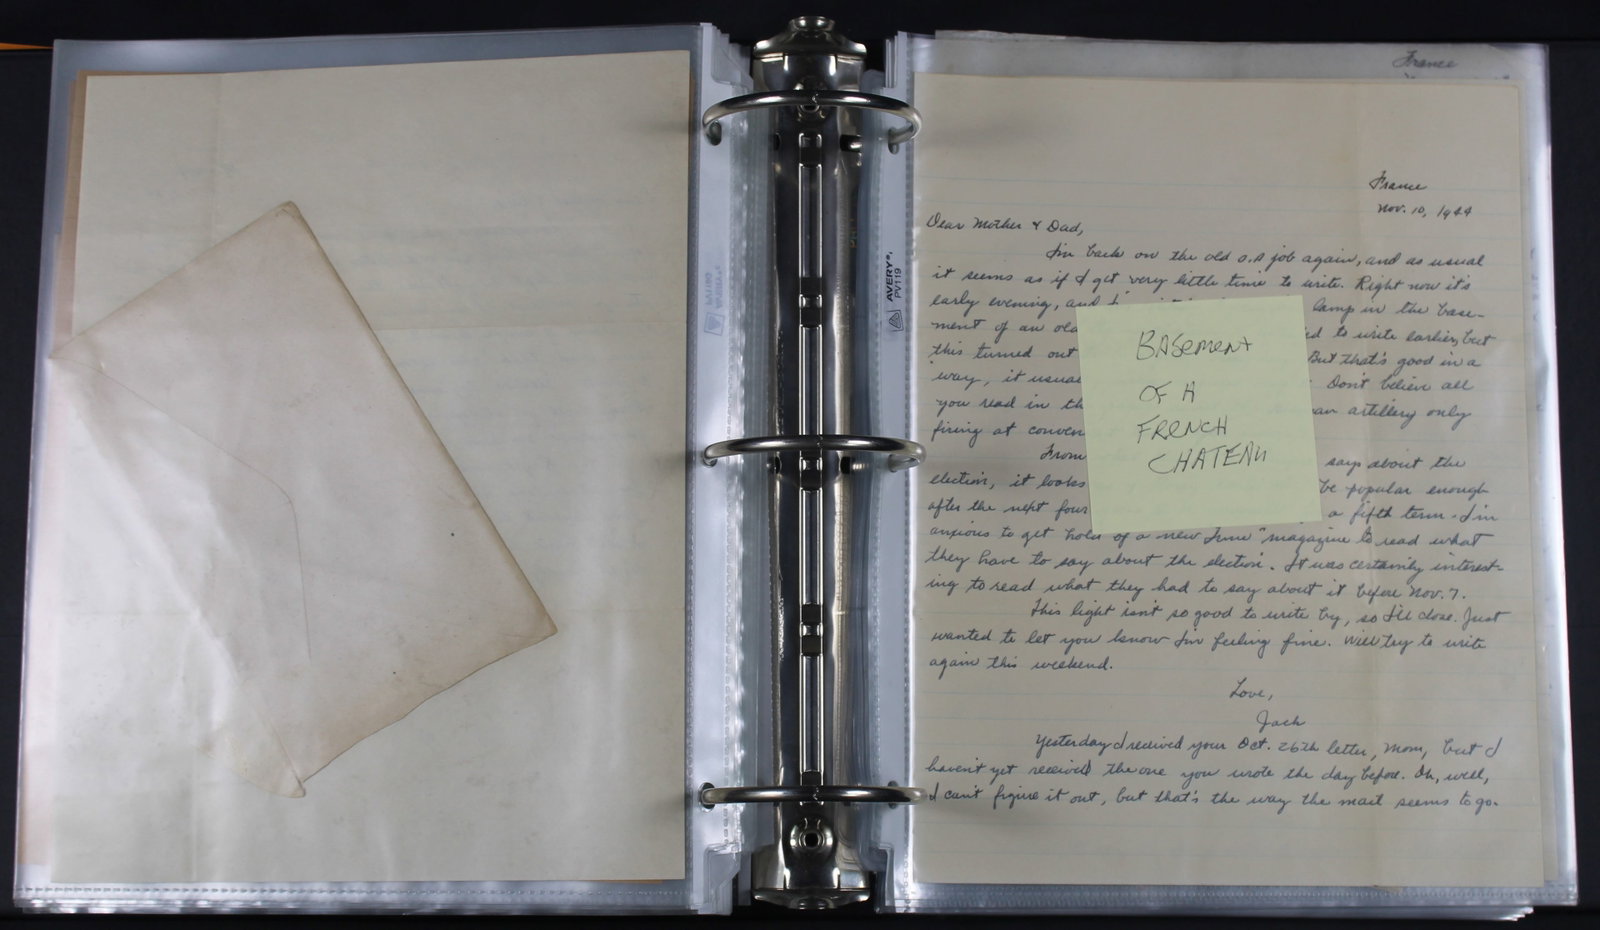 France
France
Nov. 10, 1944
Dear Mother & Dad,
I'm back on the old O.P. job again, and as usual
it seems as if I get very little time to write. Right now it's
early evening, and lamp in the base-
ment of an old to write earlier, but
this turned out But that's good in a
way, it usual Don't believe all
you read in th artillery only
firing at conven
From says about the
election, it looks be popular enough
after the next four a fifth term. I'm
anxious to get hold of a new "Time" magazine to read what
they have to say about the election. It was certainly interest-
ing to read what they had to say about it before Nov. 7.
This light isn't so good to write by, so I'll close. Just
wanted to let you know I'm feeling fine. Will try to write
again this weekend.
Love,
Jack
Yesterday I received your Oct. 26th letter, Mom, but I
haven't yet received the one you wrote the day before. Oh, well,
I can't figure it out, but that's the way the mail seems to go.
BASEMENT
OF A
FRENCH
CHATEAU
AVERY®
PV119